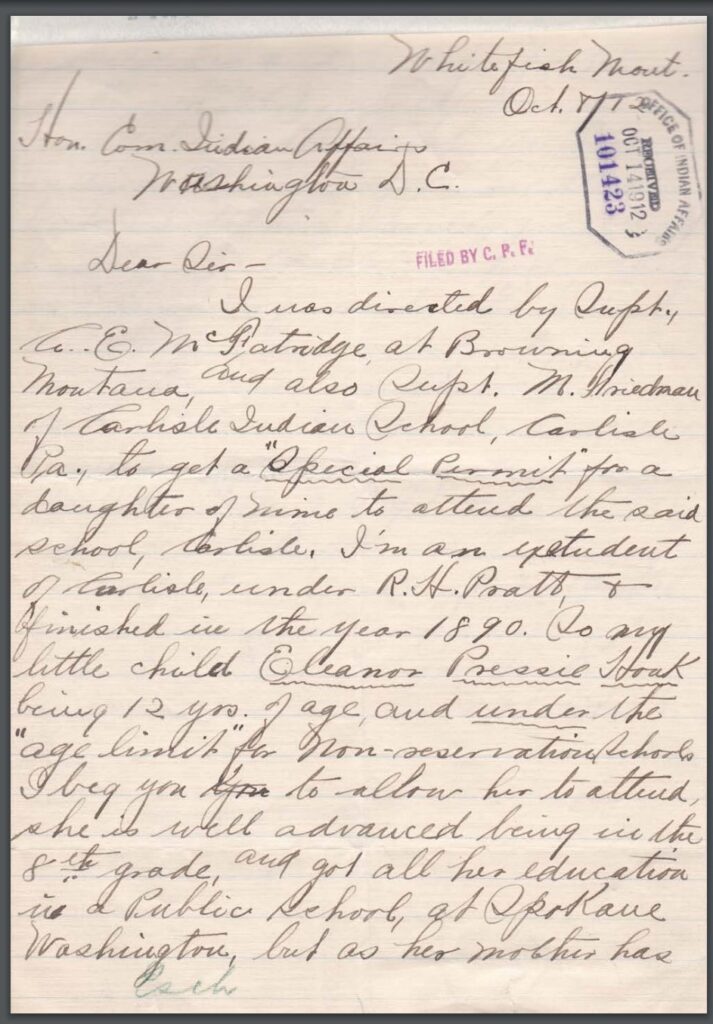 Whitefish Mont.
Oct. 8/12
OFFICE OF INDIAN AFFAIRS
RECEIVED
OCT 14 1912
101423
Hon. Com. Indian Affairs
Washington D.C.
FILED BY C. P. F.
Dear Sir -
I was directed by Supt.,
A. E. McFatridge, at Browning
Montana, and also Supt. M. Friedman
of Carlisle Indian School, Carlisle
Pa., to get a "Special Permit" for a
daughter of mine to attend the said
school, Carlisle. I'm an exstudent
of Carlisle, under R. H. Pratt, &
finished in the year 1890. So my
little child Eleanor Pressie Houk
being 12 yrs. of age, and under the
"age limit" for Non-reservation Schools
I beg you you to allow her to attend,
she is well advanced being in the
8th grade, and got all her education
in a Public School, at Spokane
Washington, but as her mother has
Esch